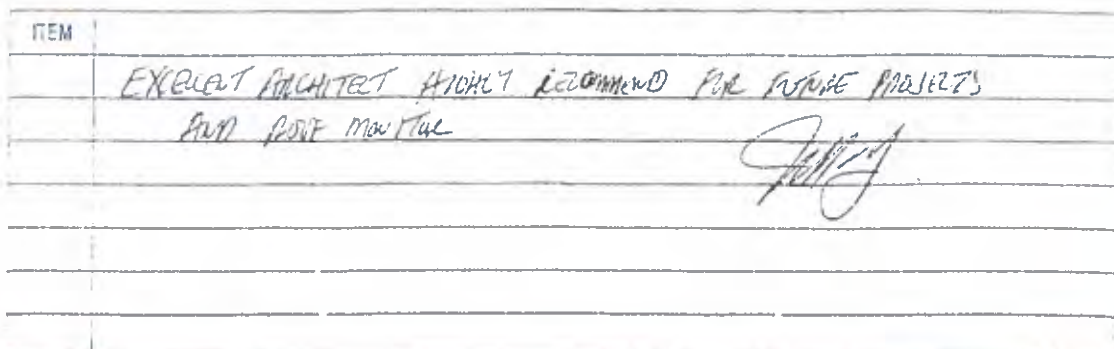 ITEM
EXCELLENT ARCHITECT HIGHLY RECOMMEND FOR FUTURE PROJECTS
AND ROOF MONITOR